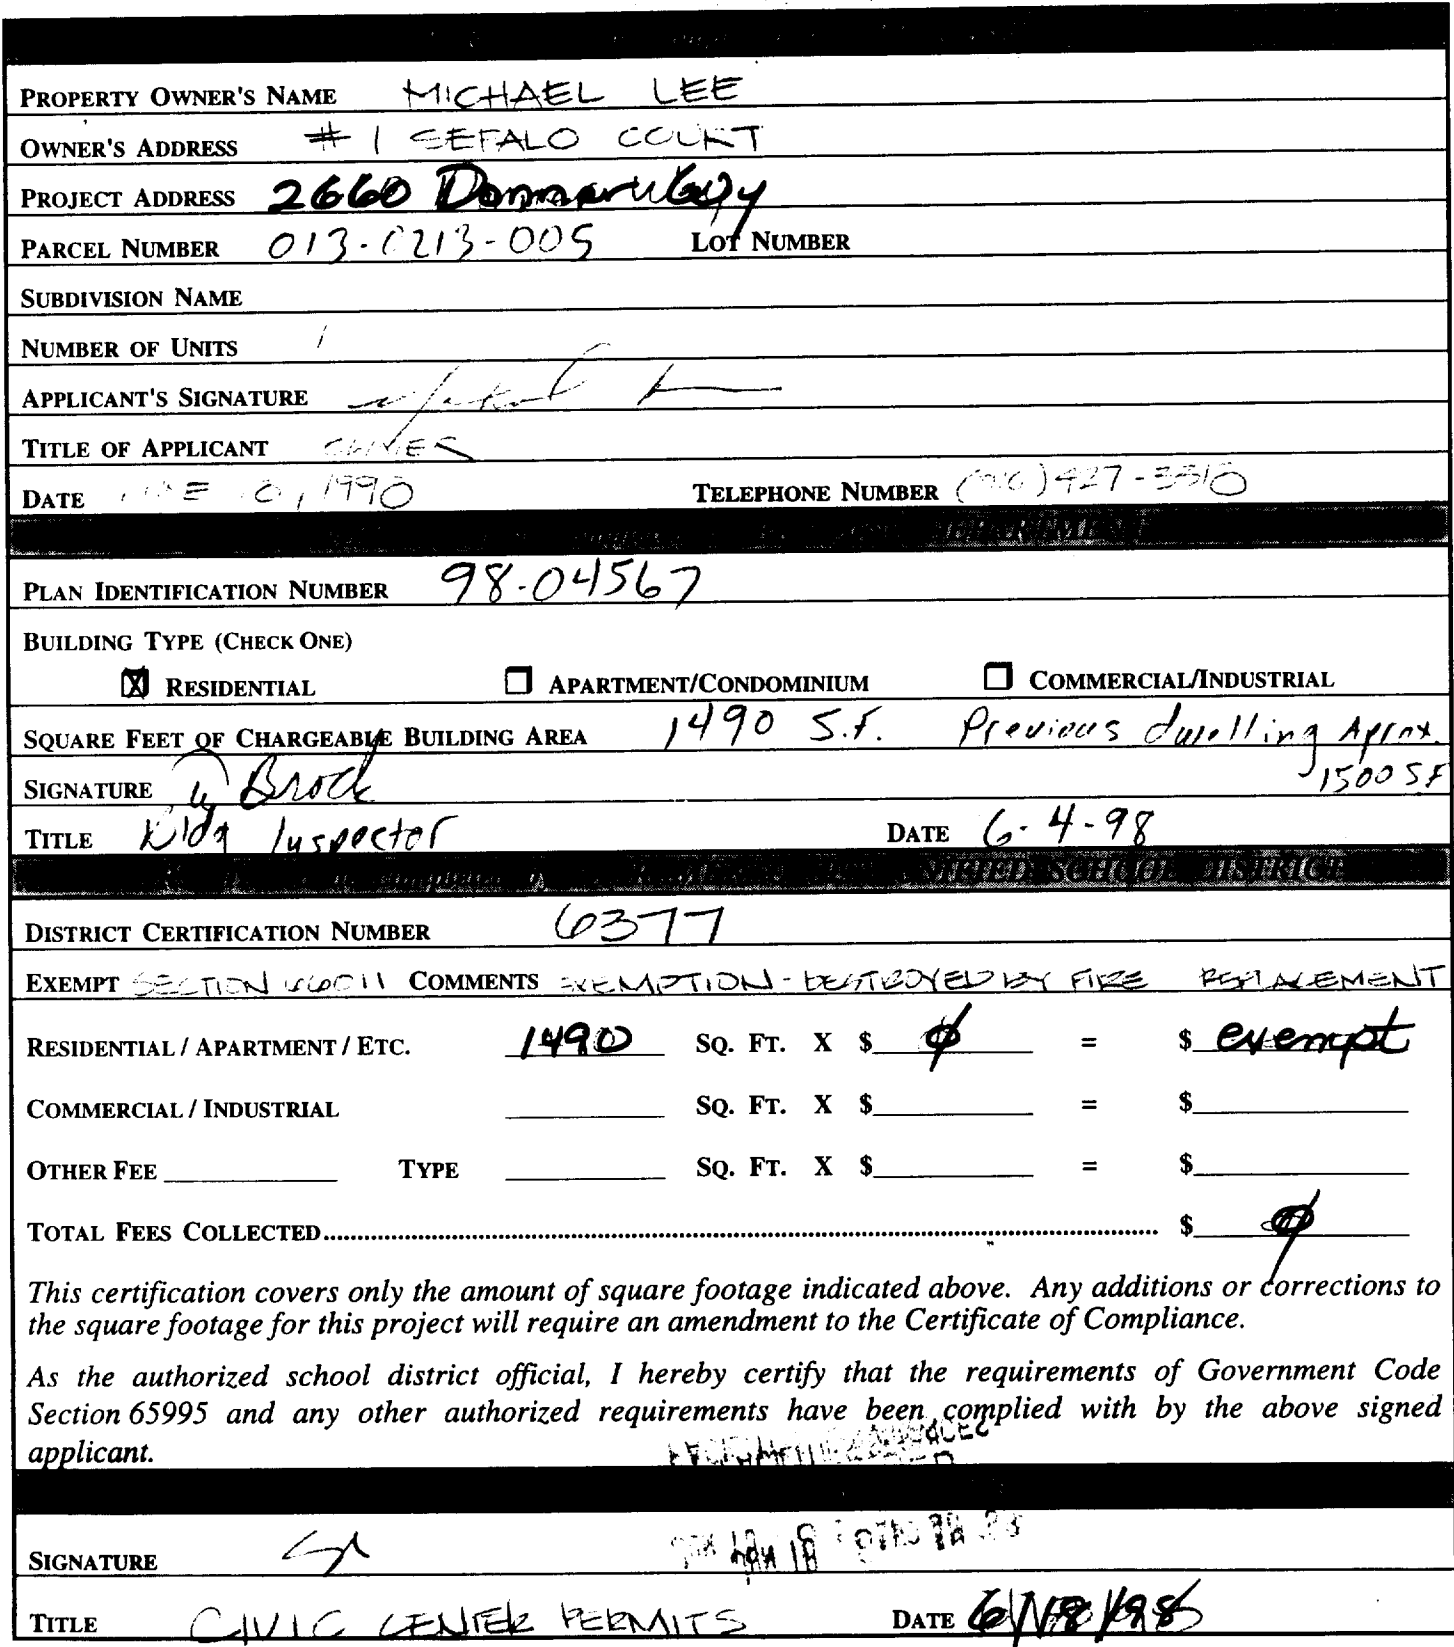 PROPERTY OWNER'S NAME MICHAEL LEE
OWNER'S ADDRESS # 1 SEFALO COURT
PROJECT ADDRESS 2660
PARCEL NUMBER 013-0213-005 LOT NUMBER
SUBDIVISION NAME
NUMBER OF UNITS 1
APPLICANT'S SIGNATURE
TITLE OF APPLICANT OWNER
DATE 1990 TELEPHONE NUMBER 427-3310
DEPARTMENT
PLAN IDENTIFICATION NUMBER 98-04567
BUILDING TYPE (CHECK ONE)
☒ RESIDENTIAL ☐ APARTMENT/CONDOMINIUM ☐ COMMERCIAL/INDUSTRIAL
SQUARE FEET OF CHARGEABLE BUILDING AREA 1490 S.F. Previous dwelling Aprox.
1500 SF
SIGNATURE Brock
TITLE Bldg Inspector DATE 6-4-98
UNIFIED SCHOOL DISTRICT
DISTRICT CERTIFICATION NUMBER 6377
EXEMPT SECTION 66011 COMMENTS EXEMPTION - DESTROYED BY FIRE REPLACEMENT
RESIDENTIAL / APARTMENT / ETC. 1490 SQ. FT. X $ Ø = $ exempt
COMMERCIAL / INDUSTRIAL SQ. FT. X $ = $
OTHER FEE TYPE SQ. FT. X $ = $
TOTAL FEES COLLECTED........ $ Ø
This certification covers only the amount of square footage indicated above. Any additions or corrections to
the square footage for this project will require an amendment to the Certificate of Compliance.
As the authorized school district official, I hereby certify that the requirements of Government Code
Section 65995 and any other authorized requirements have been complied with by the above signed
applicant.
SIGNATURE
TITLE CIVIC CENTER PERMITS DATE 6/18/98